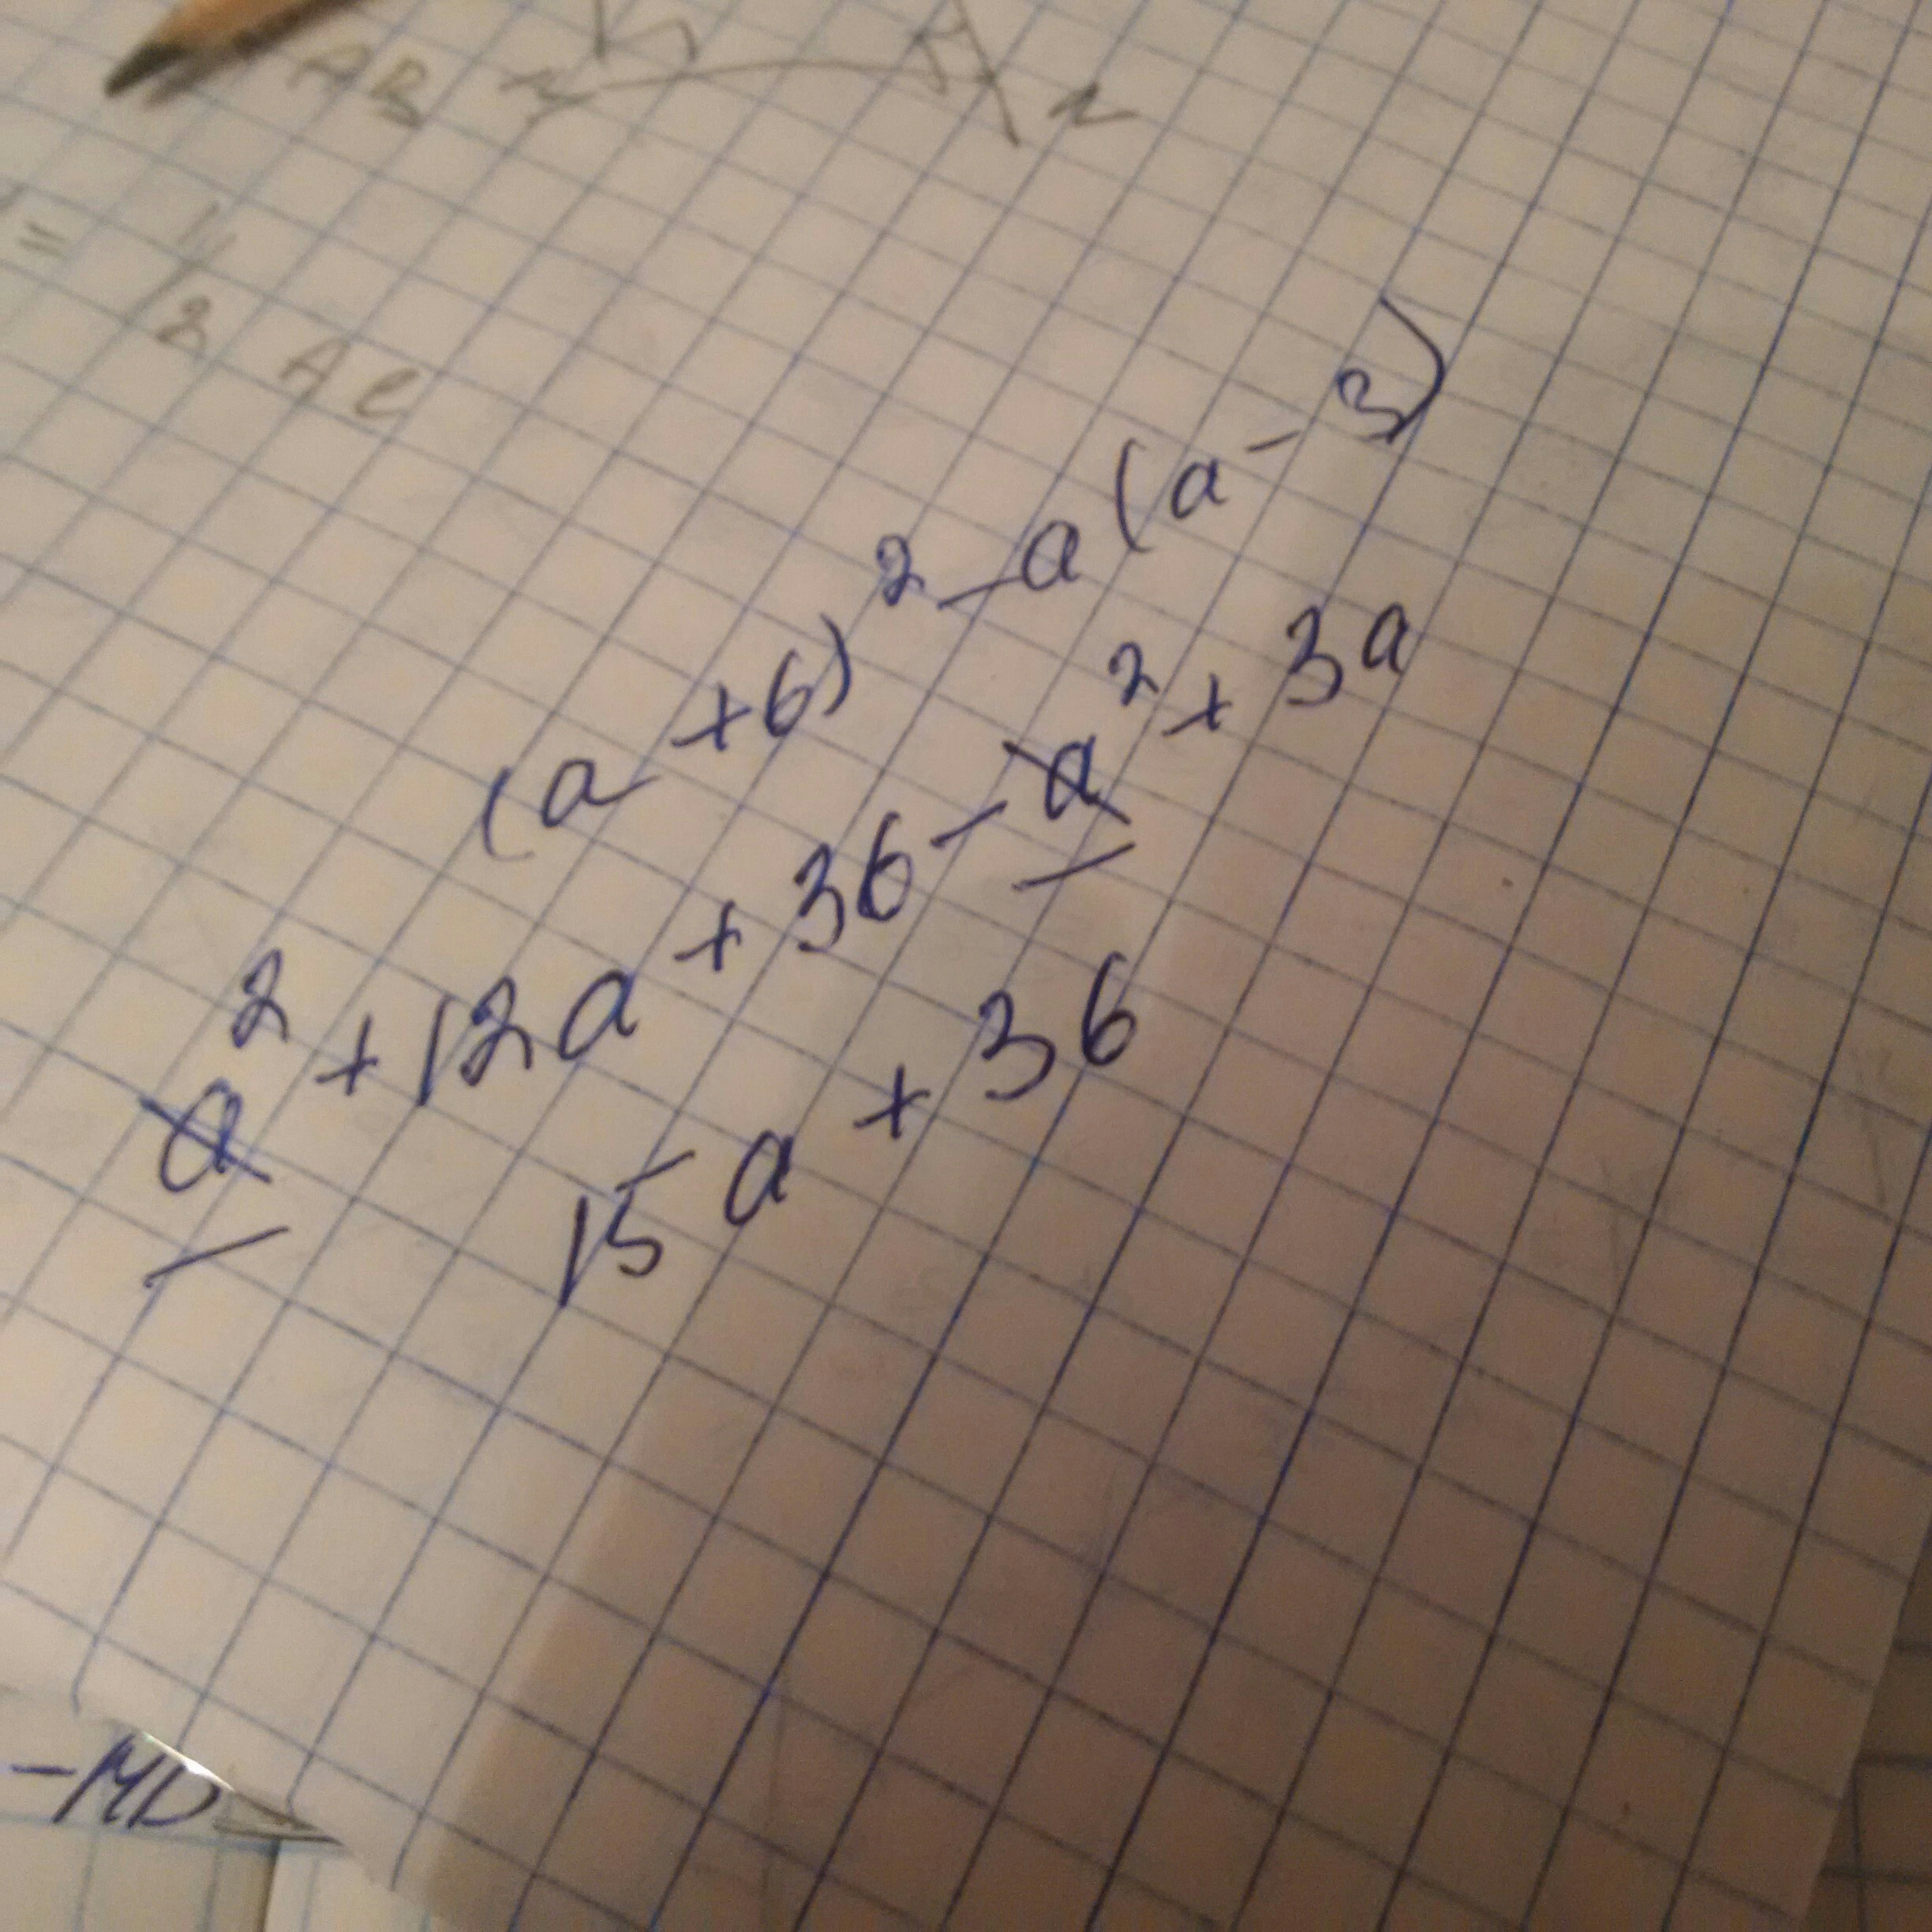 AB
N
= 1/2 AC
(a+6)² - a(a-3)
a² + 12a + 36 - a² + 3a
15a + 36
-MD